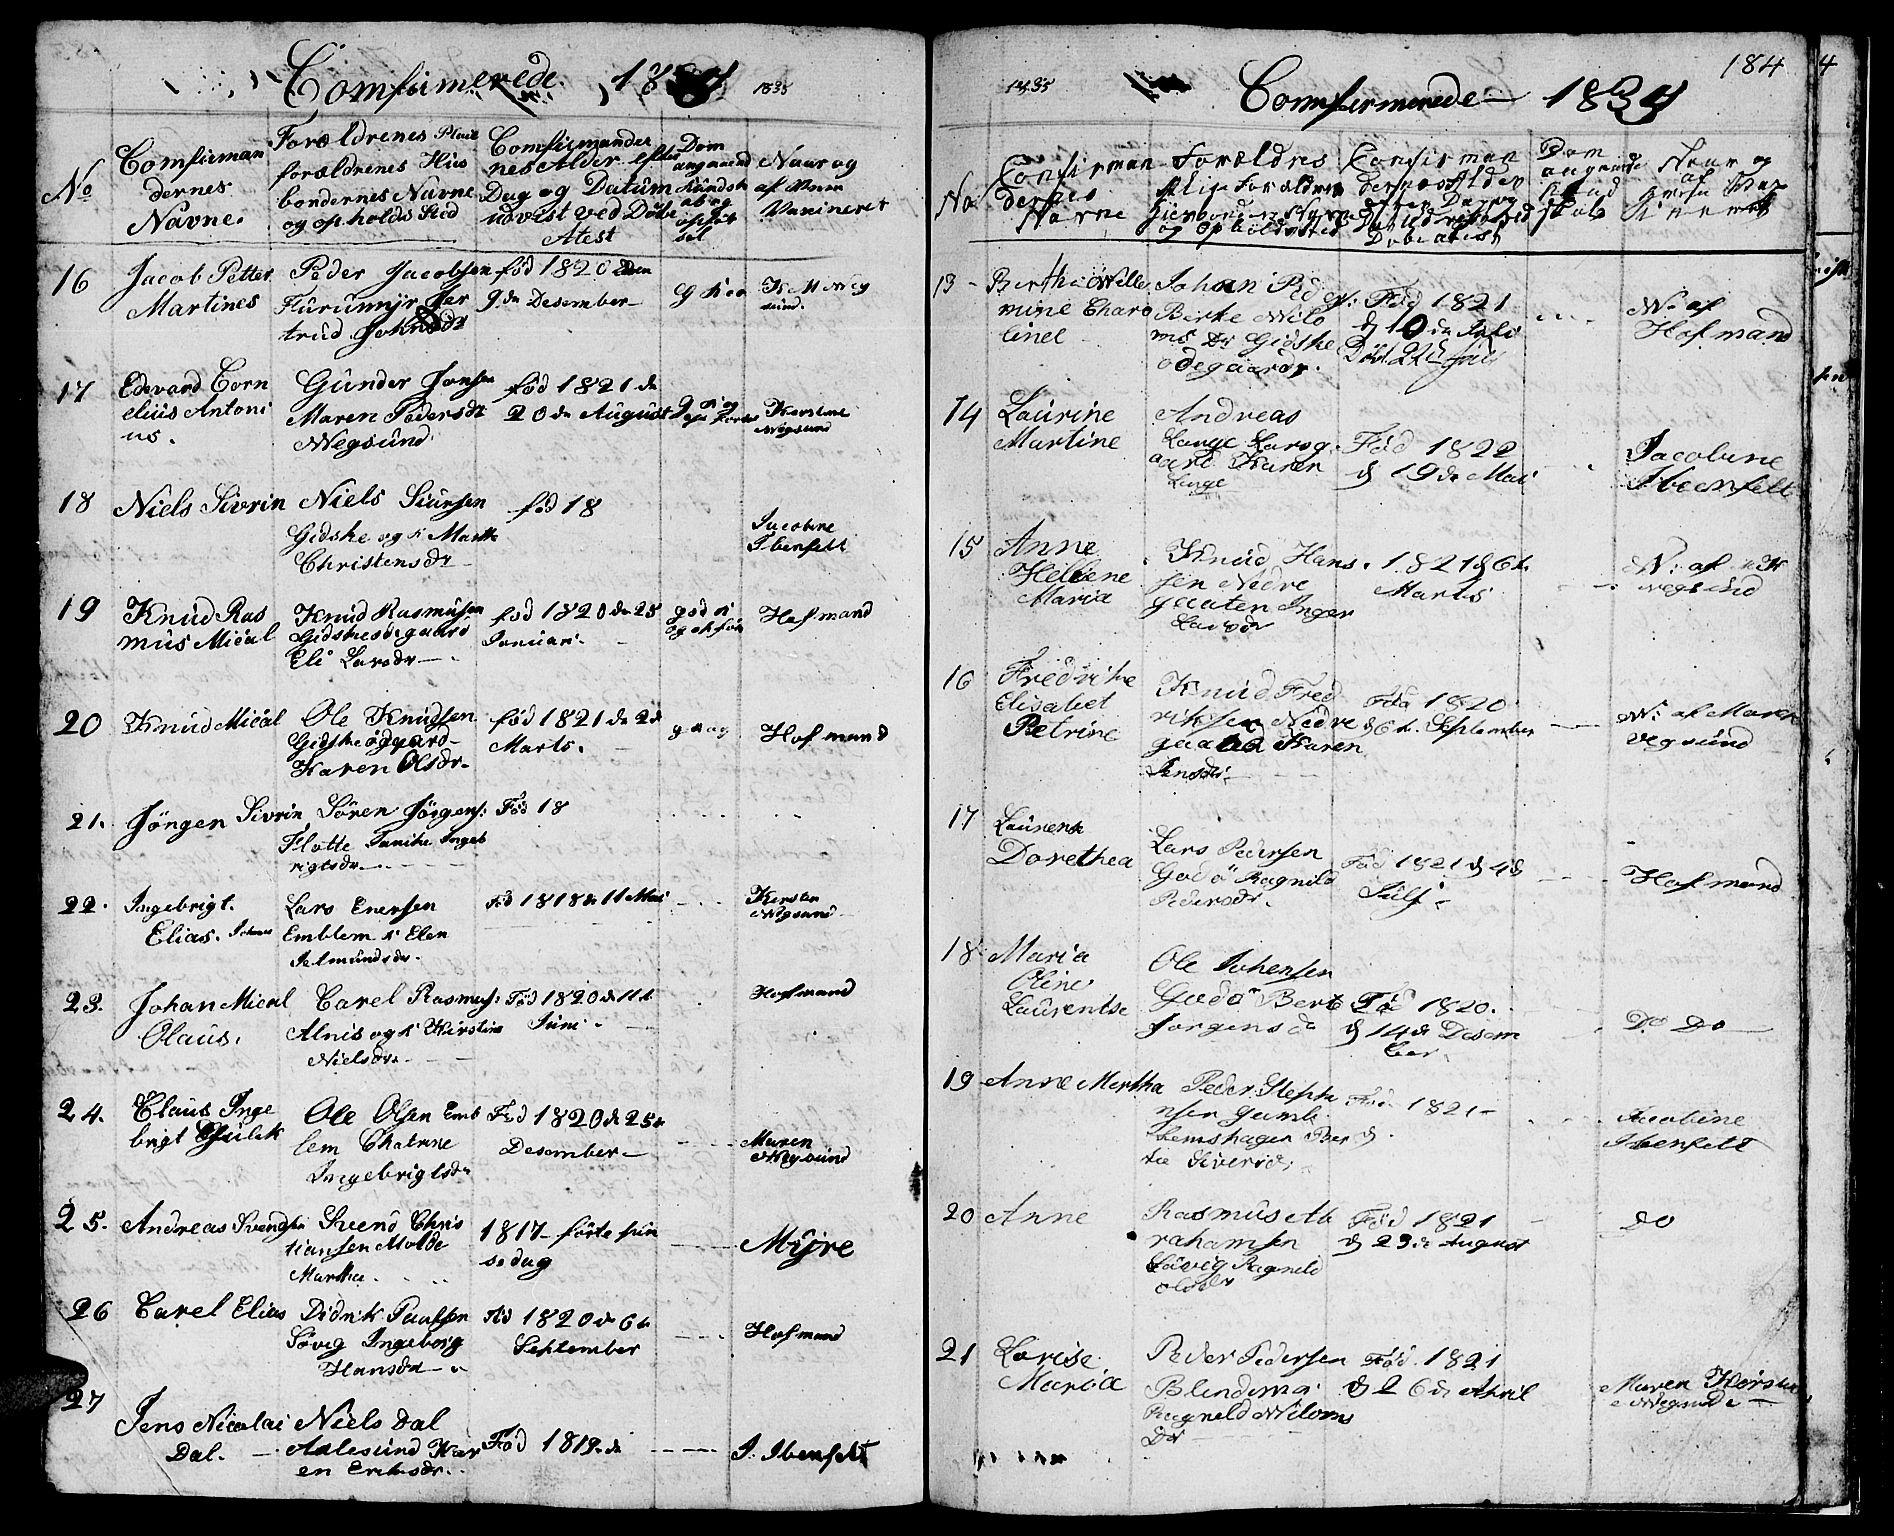 Comfirmerede 1834 1835
No
Comfirman
dernes
Navne.
Forældrenes Pleie
forældrenes Hus
bondernes Navne
og opholds Sted
Comfirmander
nes Alder efter
Dag og Datum
udvist ved Døbe
Atest
Dom
angaaend
Kundsk
ab og
opfør
sel
Naar og
af hvem
Vaxineret
16 Jacob Petter
Martines
Peder Jacobsen
Furumyr Ger
trud Johnsdr
fød 1820 den
9de Desember
K M Weg
sund.
17 Edevard Corn
elius Antoni
us.
Gunder Jonsen
Maren Pedersdr
Wegsund.
fød 1821 de
20de August
Kerstine
Wegsund
18 Niels Sivrin
Niels Siursen
Gidske og k Marthe
Christensdr
fød 18
Jacobine
Ibenfelt
19 Knud Ras
mus Mical
Knud Rasmusen
Gidskesdegaard
Eli Larsdr
fød 1820 de 25
Januari
god
og opfør
Hofmand
20 Knud Mical
Ole Knudsen
Gidskeødgaard
Karen Olsdr
fød 1821 de 2de
Marts.
Hofmand
21. Jörgen Sivrin
Sören Jörgens:
Flotte Tanike Ingeb
rigtsdr
Fød 18
22. Ingebrigt
Elias. Johanes
Lars Enersen
Emblem k Elen
Jetmundsdr.
Fød 1818 de 11 Mai
Kersten
Wegsund
23. Johan Mical
Olaus.
Carel Rasmus:
Alnis og k Kirstine
Nielsdr.
Fød 1820 de 11t
Juni
Hofmand
24. Claus Inge
brigt Gulik
Ole Olsen Emb
lem Chatrine
Ingebrigtsdr
Fød 1820 de 25t
Desember
Maren
Wegsund
25. Andreas Svendsen
Svend Chris
tiansen Molde
Martha
1817 förte pin
sedag
Myre
26 Carel Elias
Didrik Paulsen
Søvig Ingeborg
Hansdr
Fød 1820 de 6t
September
Hofmand
27 Jens Nicolai
Dal.
Niels Dal
Aalesund Kar
en Eriksdr.
Fød 1819 de
J. Ibenfelt
1835 Comfirmerede 1834 184
No
Confirman
dernes
Navne
Forældres
Pleie Forældres
Husbonders Navne
og Opholdsted
Confirman
dernes Alder
efter Dag og
Datum udvist ved
Døbeatest
Dom
angaaende
Kund
skab
Naar og
af
hvem Vax
ineret
13 Berthe Wille
mine Charo
linel
Johan Ped
Birke Wilo
ms Dr Gidske
ödegaard.
Fød 1821
d 10de Juli
Døbt 22d Juli
W: af
Hofmand
14 Laurine
Martine
Andreas
Lange Larsg
aard Karen
Lange
Fød 1822
d 19de Mai
Jacobine
Ibenfelt
15 Anne
Hellene
Maria
Knud Hans
sen Nedre
gaaten Inger
Larsdr
1821 d 6t
Marts
W: af K
Wegsund
16 Fredrike
Elisabet
Petrine
Knud Fred
riksen Nedre
gaaten Karen
Jensdr
Föd 1820
d 6t. September
W: af Maren
Vegsund
17 Laurense
Dorethea
Lars Pedersen
Godö Ragnild
Pedersdr.
Fød 1821 d 4de
Julj
Hofmand
18 Maria
Oline
Laurentse
Ole Johensen
Godö Berte
Jörgensdr
Fød 1820.
d 14de Desem
ber.
Do Do
19 Anne Martha
Peder Steph
nsen Gamb
lemshagen Ber
te Siversd.
Fød 1821
d
Jacobine
Ibenfelt
20 Anne
Rasmus Ab
rahamsen
Søvig Ragnild
olsdr
Fød 1821
d 23de August
do
21 Lovise
Maria
Peder Pedersen
Blindemr
Ragnild Wiloms
Dr
Fød 1821
d 26de April
Maren Kirstine
Wegsunde